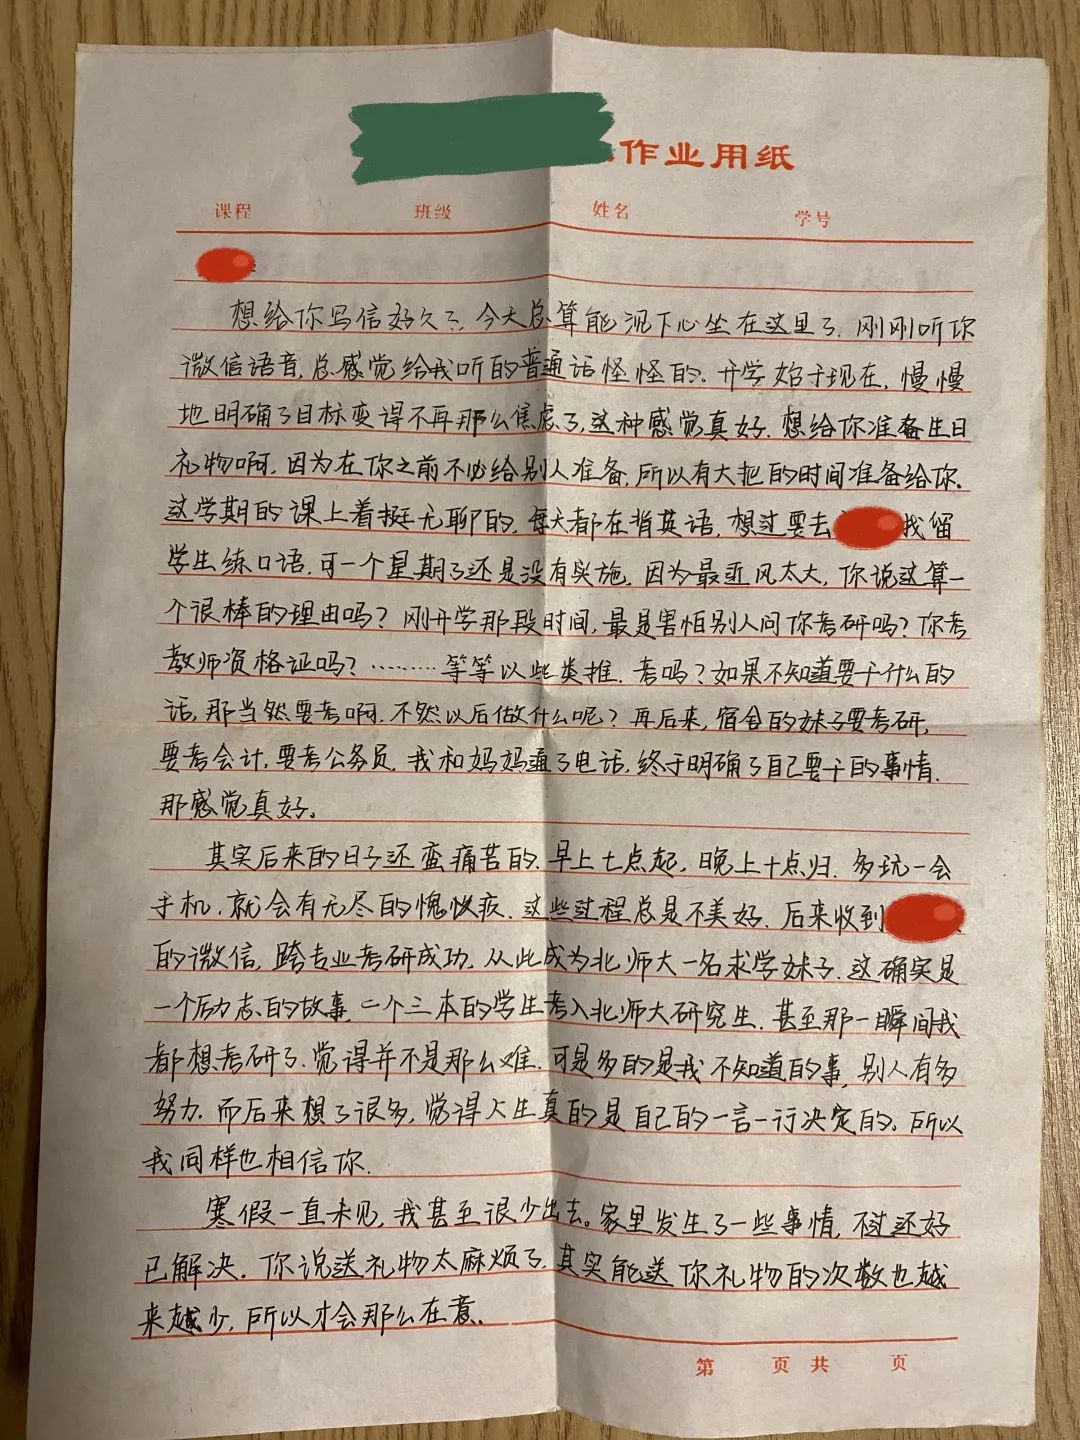 作业用纸
课程 班级 姓名 学号
想给你写信好久了，今天总算能沉下心坐在这里了.刚刚听你
微信语音，总感觉给我听的普通话怪怪的.开学始于现在，慢慢
地明确了目标变得不再那么焦虑了，这种感觉真好.想给你准备生日
礼物啊，因为在你之前不必给别人准备，所以有大把的时间准备给你.
这学期的课上着挺无聊的，每天都在背英语，想过要去 找留
学生练口语，可一个星期了还是没有实施，因为最近风太大，你说这算一
个很棒的理由吗？刚开学那段时间，最是害怕别人问你考研吗？你考
教师资格证吗？………等等以此类推.考吗？如果不知道要干什么的
话，那当然要考啊，不然以后做什么呢？再后来，宿舍的妹子要考研，
要考会计，要考公务员，我和妈妈通了电话，终于明确了自己要干的事情.
那感觉真好。
其实后来的日子还蛮痛苦的.早上七点起，晚上十点归.多玩一会
手机，就会有无尽的愧疚.这些过程总是不美好.后来收到
的微信，跨专业考研成功，从此成为北师大一名求学妹子.这确实是
一个励志的故事，二个三本的学生考入北师大研究生.甚至那一瞬间我
都想考研了.觉得并不是那么难.可是多的是我不知道的事，别人有多
努力.而后来想了很多，觉得人生真的是自己的一言一行决定的。所以
我同样也相信你.
寒假一直未见，我甚至很少出去。家里发生了一些事情，不过还好
已解决.你说送礼物太麻烦了，其实能送你礼物的次数也越
来越少，所以才会那么在意.
第 页 共 页